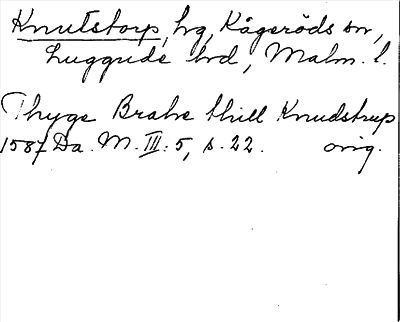 Knutstorp, hg, Kågeröds sn,
Luggude hd, Malm. l.
Thyge Brahe thill Knudstrup
1587 Da. M. III: 5, s. 22. orig.